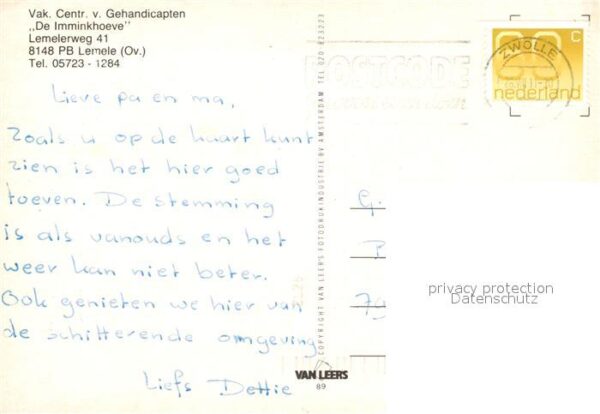 Vak. Centr. v. Gehandicapten
„De Imminkhoeve"
Lemelerweg 41
8148 PB Lemele (Ov.)
Tel. 05723 - 1284
Lieve pa en ma,
Zoals u op de kaart kunt
zien is het hier goed
toeven. De stemming
is als vanouds en het
weer kan niet beter.
Ook genieten we hier van
de schitterende omgeving
Liefs Dettie
COPYRIGHT VAN LEER'S FOTODRUKINDUSTRIE BV AMSTERDAM TEL 020
VAN LEERS
89
POSTCODE
ZWOLLE
C
nederland
G.
79
privacy protection
Datenschutz